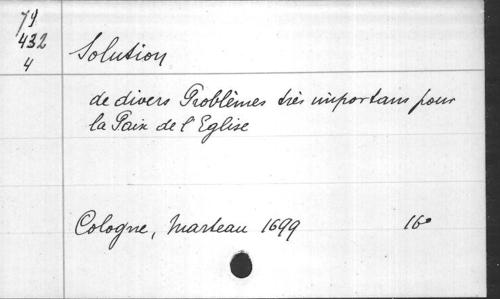 79
432
4
Solution
de divers Problèmes très importans pour
la Paix de l'Eglise
Cologne, Marteau 1699 16°